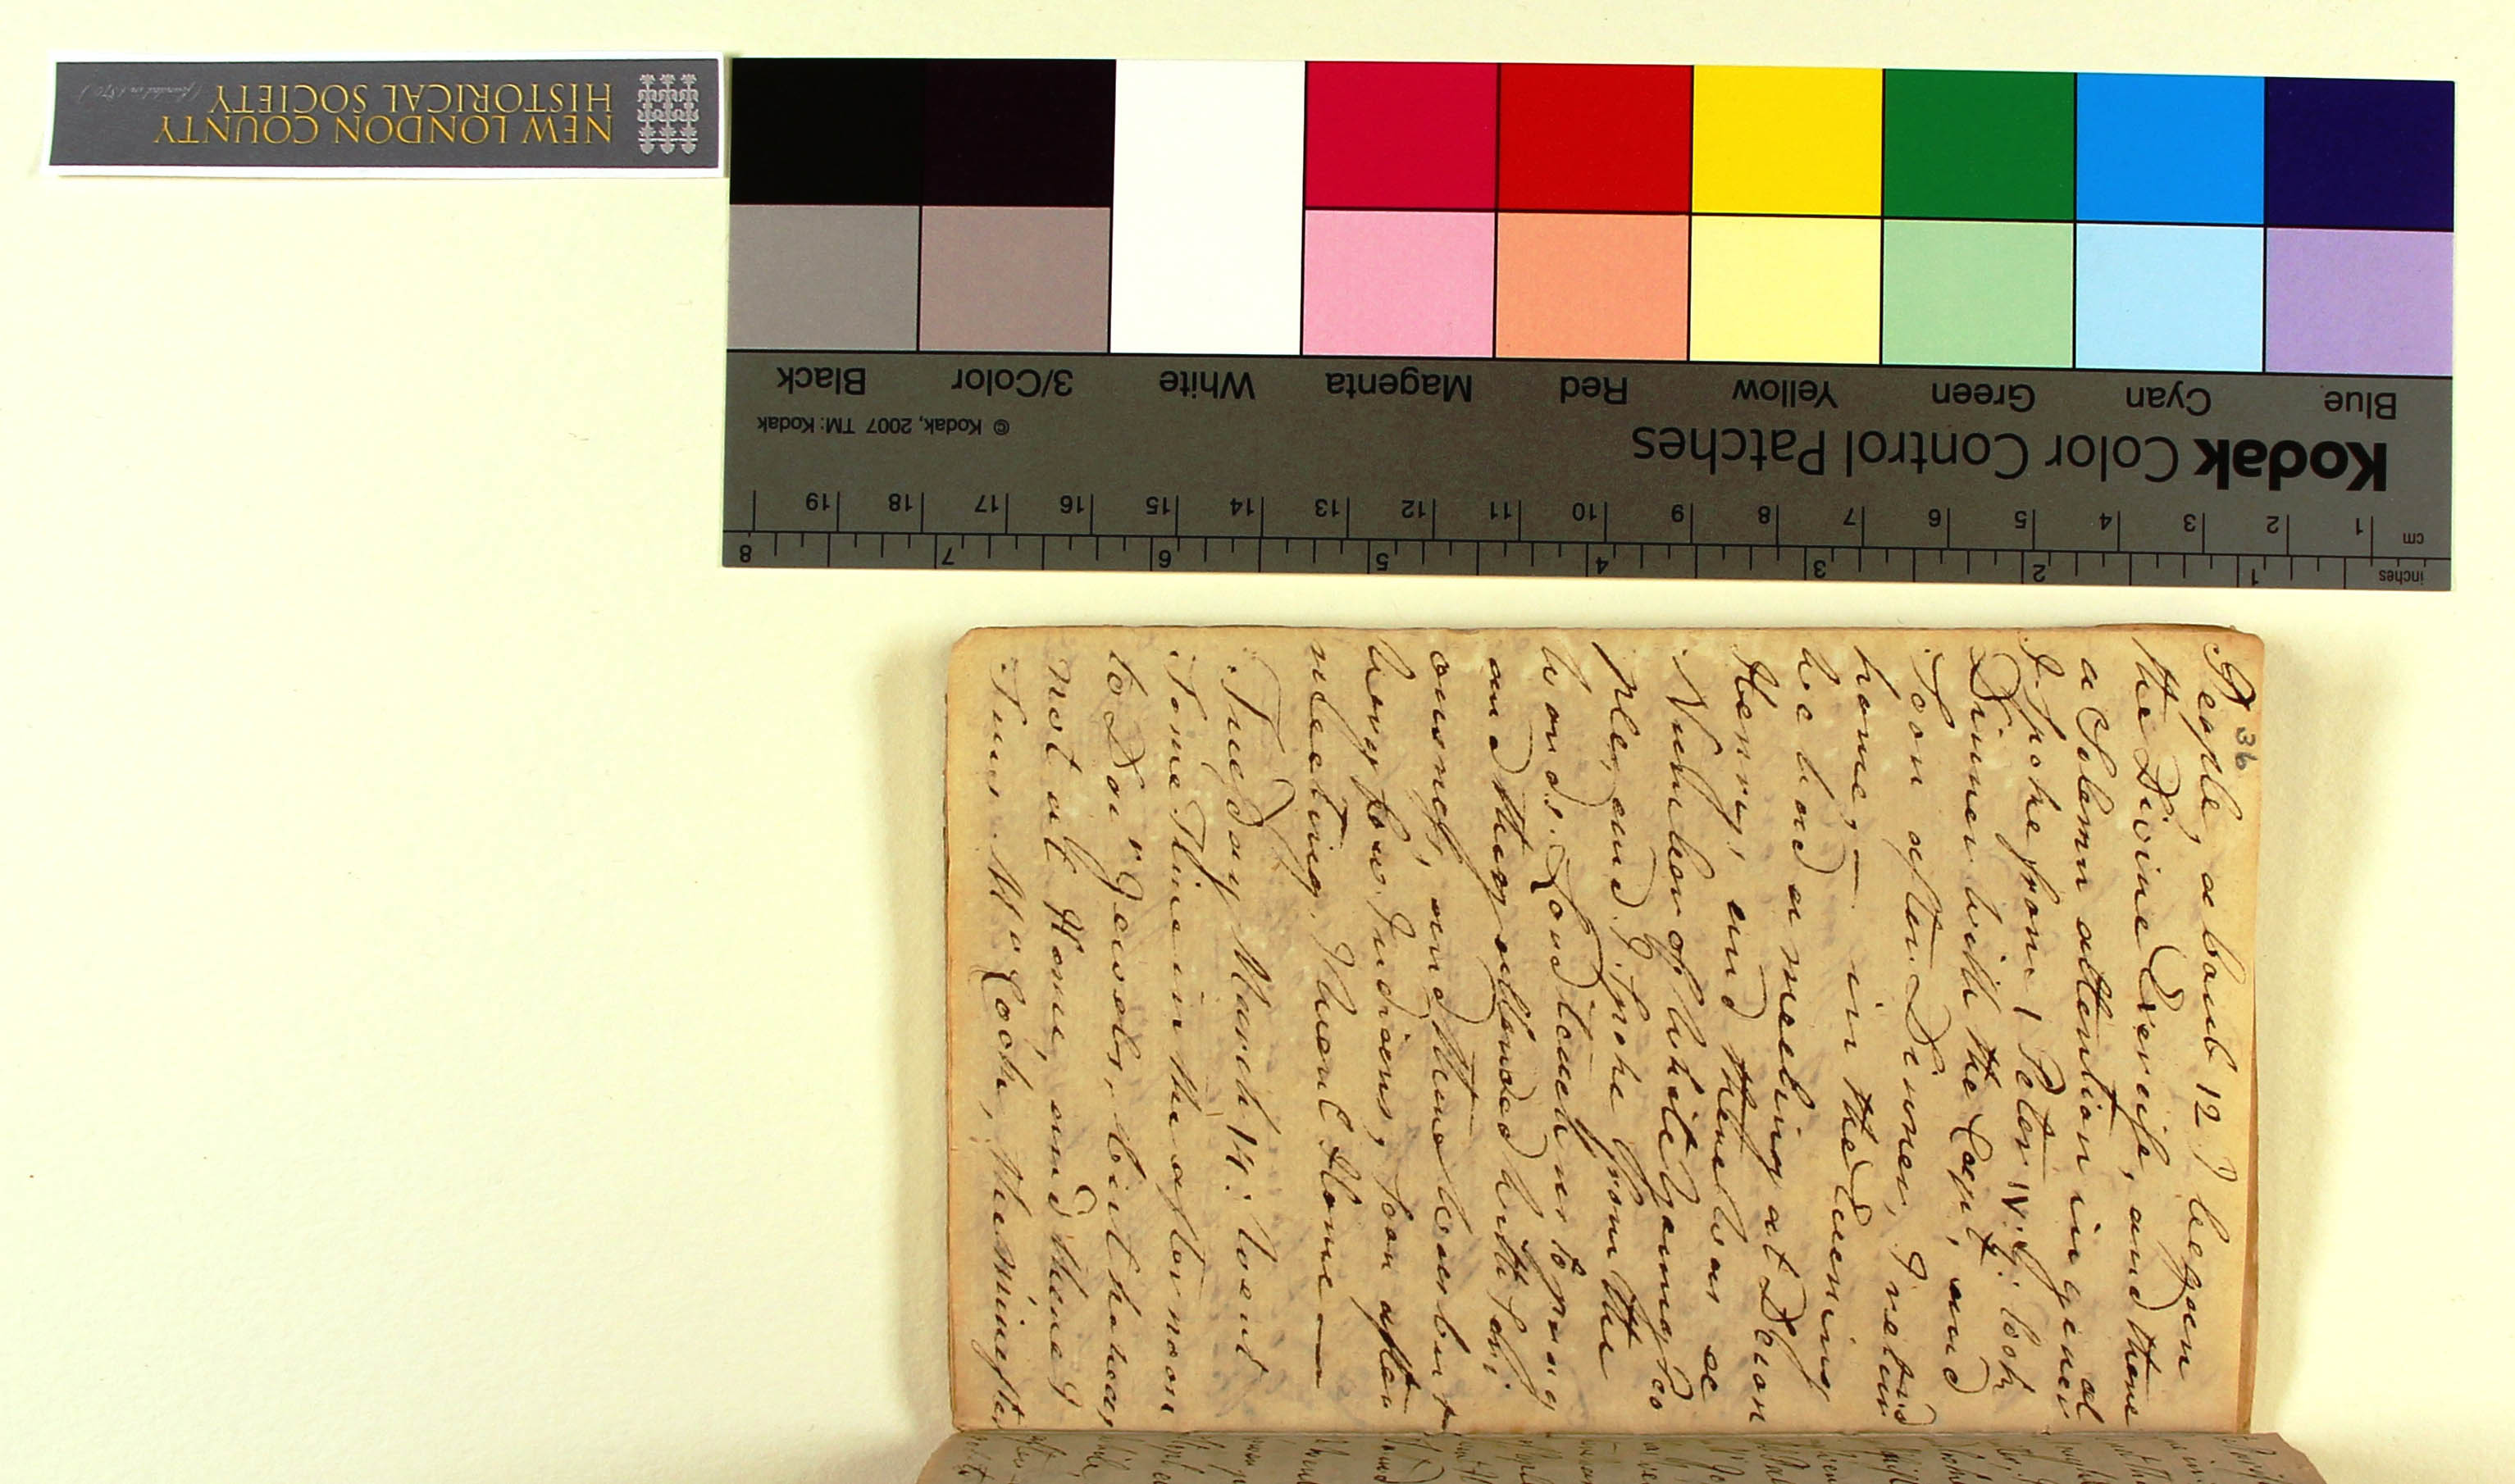 NEW LONDON COUNTY
HISTORICAL SOCIETY
(founded in 1870)
Blue Cyan Green Yellow Red Magenta White 3/Color Black
Kodak Color Control Patches
© Kodak, 2007 TM: Kodak
cm 1 2 3 4 5 6 7 8 9 10 11 12 13 14 15 16 17 18 19
inches 1 2 3 4 5 6 7 8
36
People, about 12 I began
the Divine Exercise, and there
a Solemn attention in general
I spoke from 1 Peter IV. 7: took
Dinner with the Capt, and
Soon after Dinner, I returnd
home,— in the Evening
we had a meeting at Deacon
Henrys, and there was a
Number of white Young Peo
ple, and I Spoke from the
words. Lord teach us to pray
and they attended with Seri
ousness, and there was but
very few Indians, Soon after
meeting I went Home —
Tuesday March 14: went
Some Time in the afternoon
to Docr Jewets, but he was
not at Home, and there I
Saw Mr Cook, the minester